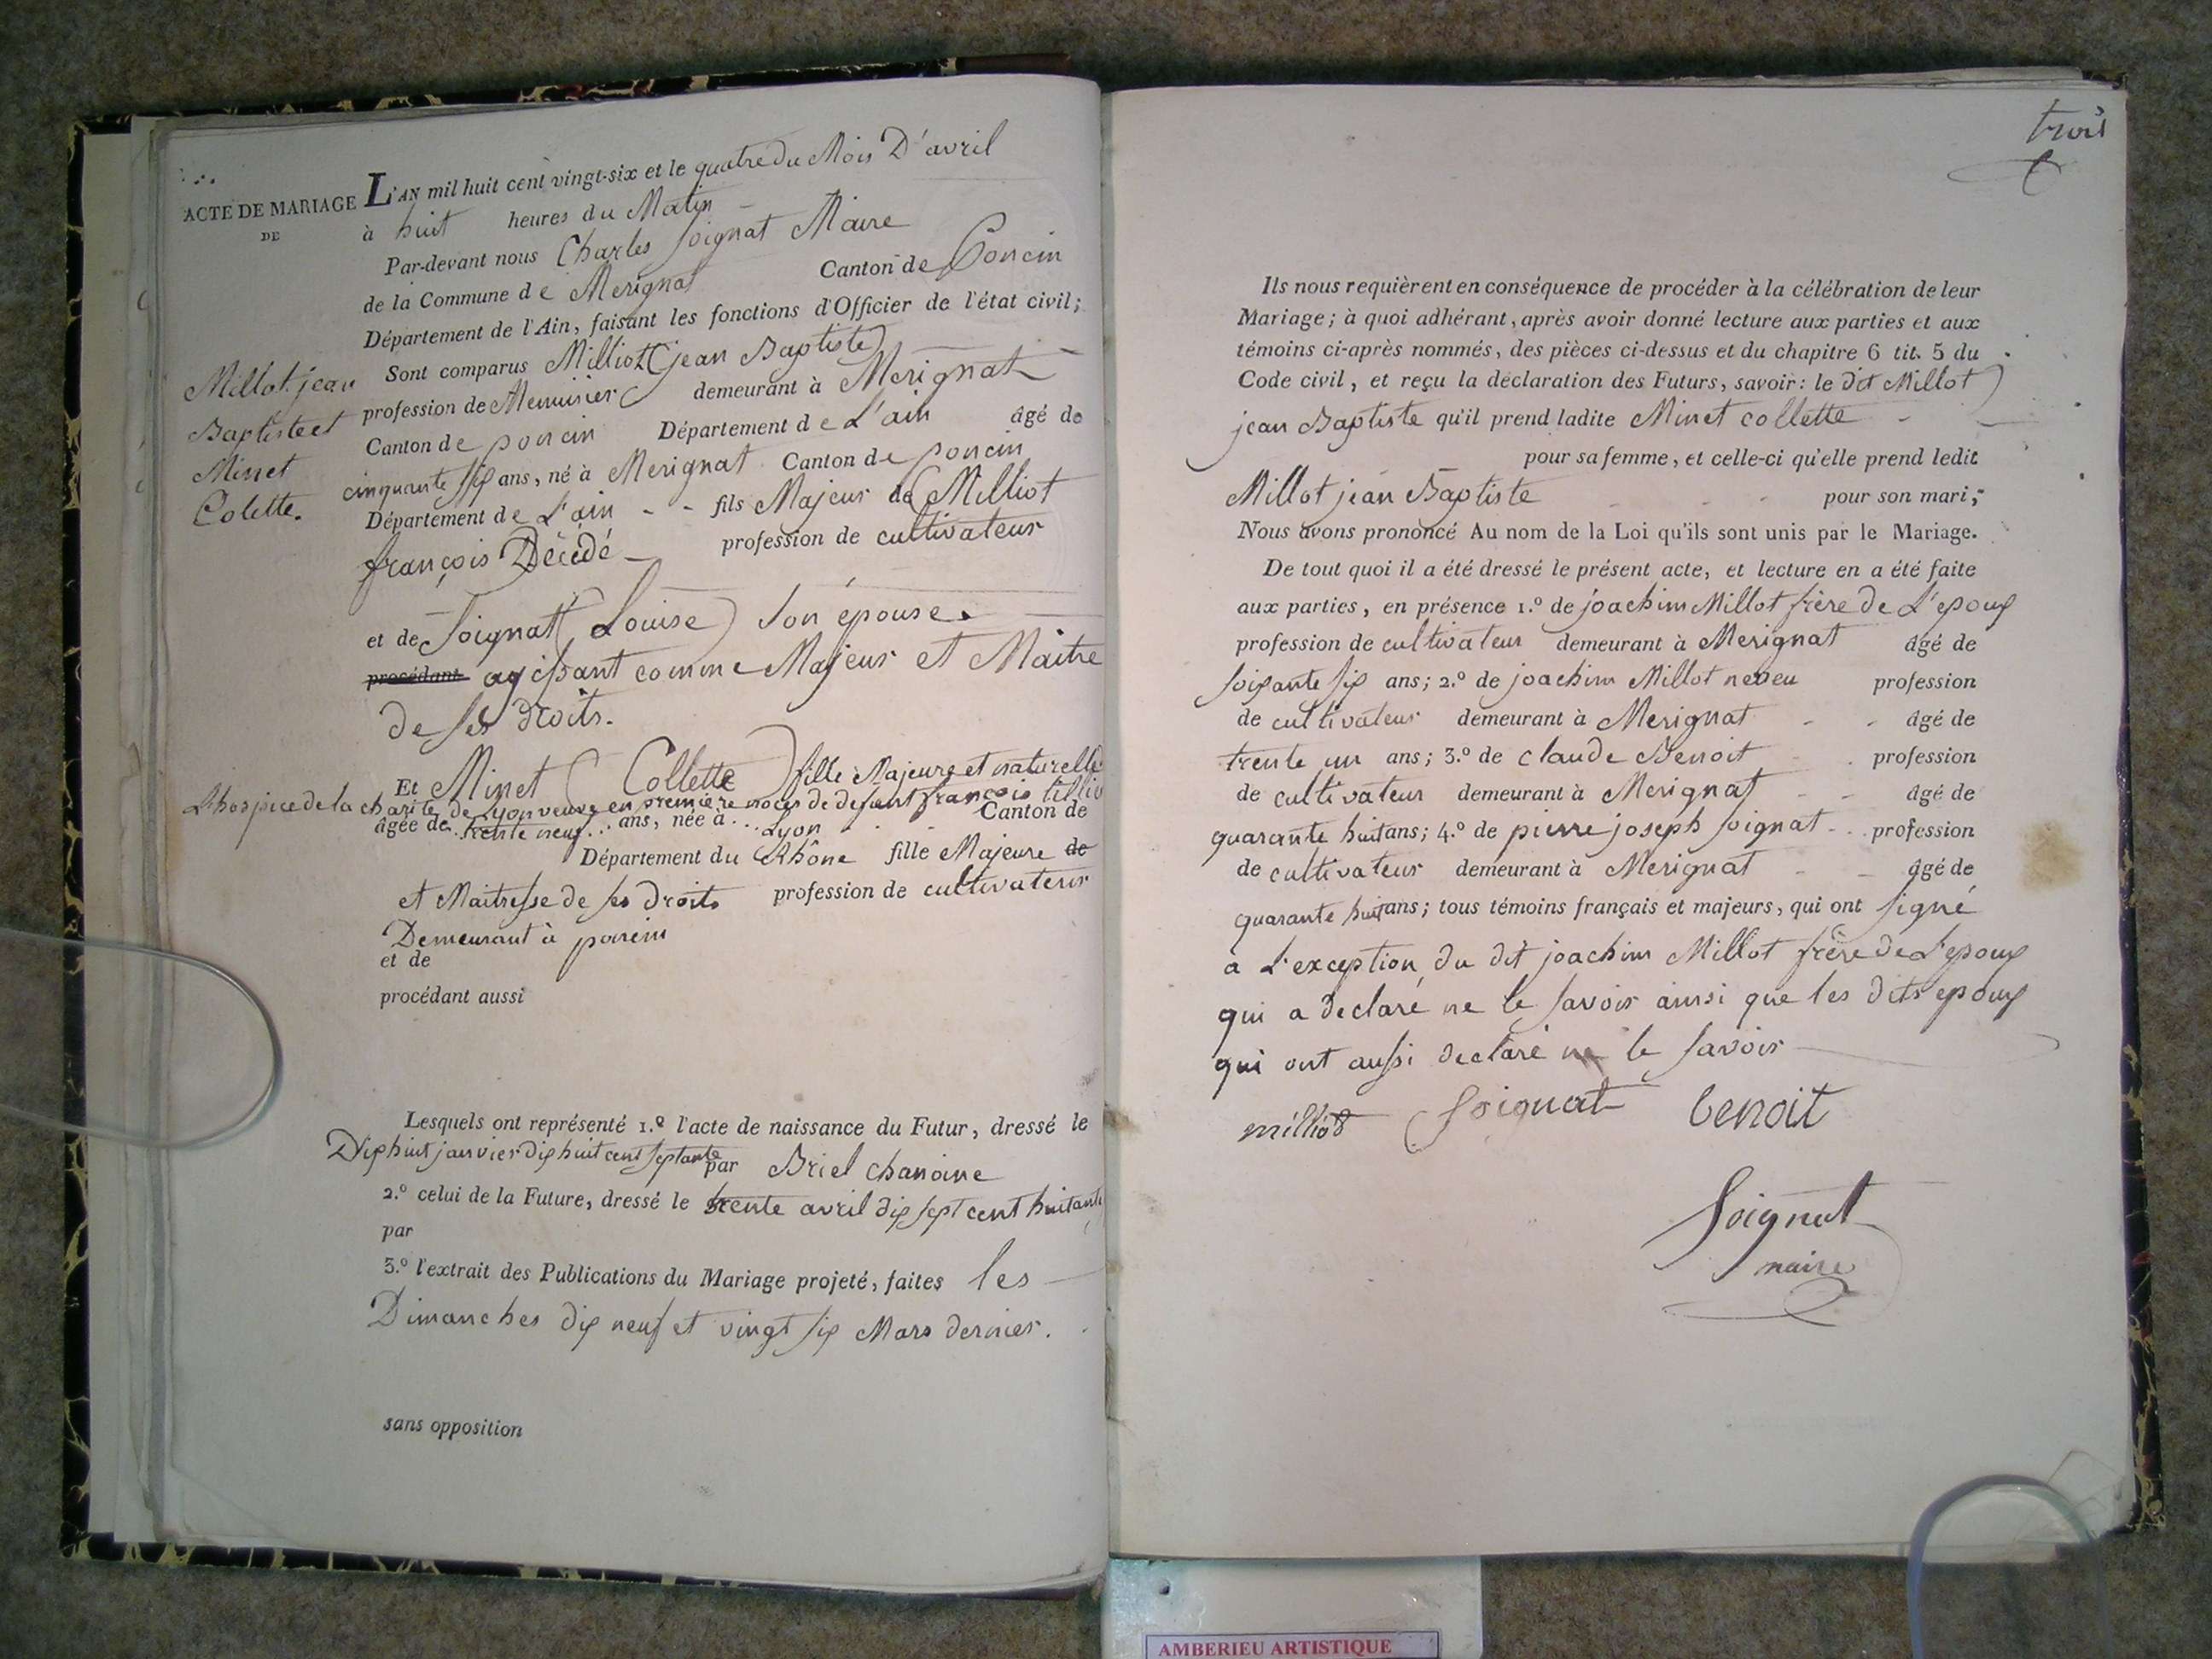 L'AN mil huit cent vingt-six et le quatre du Mois D'avril
ACTE DE MARIAGE
DE
à huit heures du Matin
Par-devant nous Charles Soignat Maire
de la Commune de Merignat Canton de Poncin
Département de l'Ain, faisant les fonctions d'Officier de l'état civil;
Sont comparus Milliot (jean Baptiste)
profession de Menuisier demeurant à Merignat
Canton de poncin Département de L'ain âgé de
cinquante six ans, né à Merignat Canton de poncin
Département de L'ain - - fils Majeur de Milliot
françois Décédé - profession de cultivateur
Millot jean
Baptiste et
Minet
Colette.
et de Soignat (Louise) son épouse.
procédant agissant comme Majeur et Maitre
de ses droits.
Et Minet (Collette) fille Majeure et naturelle
L'hospice de la charité de Lyon veuve en premiere noces de defunt françois
âgée de trente neuf ... ans, née à ... Lyon Canton de
Département du Rhône fille Majeure de
et Maitresse de ses droits profession de cultivateur
Demeurant à poncin
et de
procédant aussi
Lesquels ont représenté 1.º l'acte de naissance du Futur, dressé le
Dix huit janvier dix huit cent septante par Briel chanoine
2.º celui de la Future, dressé le trente avril dix sept cent huitante
par
3.º l'extrait des Publications du Mariage projeté, faites les
Dimanches dix neuf et vingt six Mars dernier.
sans opposition
trois
Ils nous requièrent en conséquence de procéder à la célébration de leur
Mariage; à quoi adhérant, après avoir donné lecture aux parties et aux
témoins ci-après nommés, des pièces ci-dessus et du chapitre 6 tit. 5 du
Code civil, et reçu la déclaration des Futurs, savoir: le dit Millot
jean Baptiste qu'il prend ladite Minet collette -
pour sa femme, et celle-ci qu'elle prend ledit
Millot jean Baptiste pour son mari;
Nous avons prononcé Au nom de la Loi qu'ils sont unis par le Mariage.
De tout quoi il a été dressé le présent acte, et lecture en a été faite
aux parties, en présence 1.º de joachim Millot frère de L'epoux
profession de cultivateur demeurant à Merignat âgé de
soixante six ans; 2.º de joachim Millot neveu profession
de cultivateur demeurant à Merignat - - âgé de
trente un ans; 3.º de claude Benoit profession
de cultivateur demeurant à Merignat - - âgé de
quarante huit ans; 4.º de pierre joseph soignat - profession
de cultivateur demeurant à Merignat - - âgé de
quarante huit ans; tous témoins français et majeurs, qui ont signé
a L'exception du dit joachim Millot frère de L'epoux
qui a declaré ne le savoir ainsi que les dits epoux
qui ont aussi declaré ne le savoir
milliot Soignat benoit
Soignat
maire
AMBERIEU ARTISTIQUE